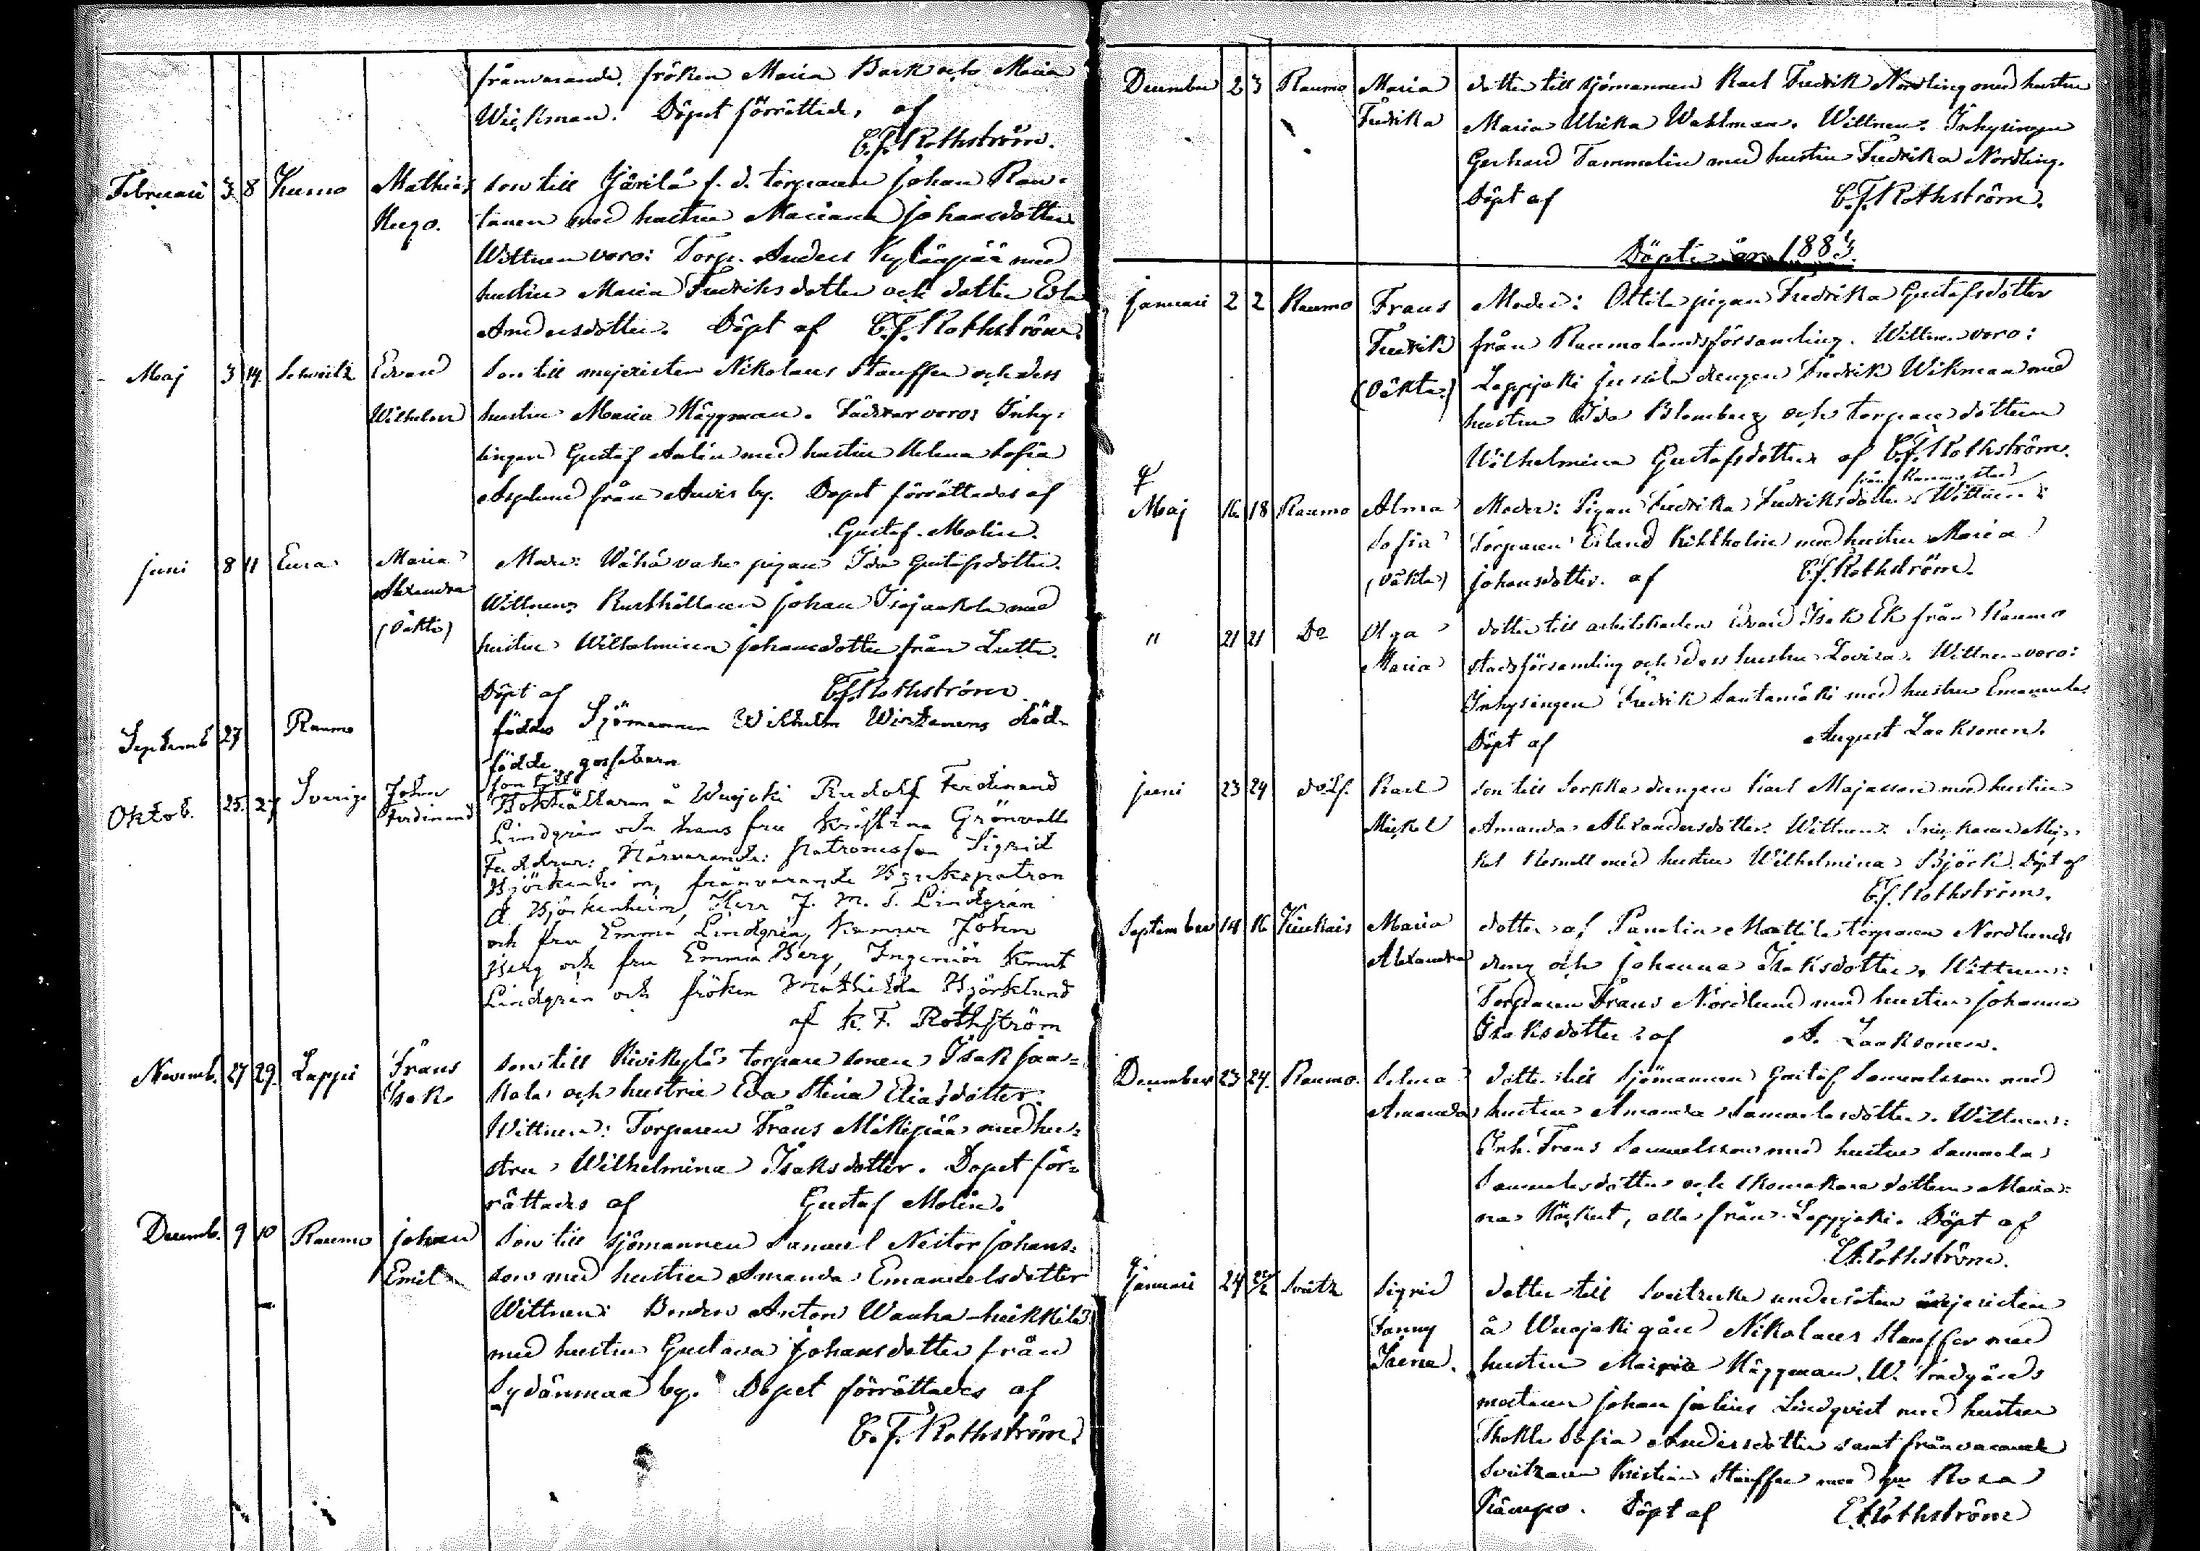 frånvarande. fröken Maria Bark och Maria
Wickman. Döpet förrättade, af
C.F. Rothström.
Februari 3 8 Kumo Mathias son till Järilä f. d. torparen Johan Ran-
Hugo. tanen med hustru Mariana Johansdotter
Wittnen voro: Torp. Anders Kylänpää med
hustru Maria Fredriksdotter och dotter Eva
Andersdotter. Döpt af C.F. Rothström.
Maj 3 14 Schweitz Edvard Son till mejeristen Nikolaus Stauffer och dess
Wilhelm hustru Maria Häggman. Faddrar voro: Inhy-
singen Gustaf Aalin med hustru Helena Sofia
Asplund från Auvis by. Dopet förrättades af
Gustaf Molin.
Juni 8 11 Eura Maria Moder: Vähävahe pigan Ida Gustafsdotter.
Alexandra Wittnen: Rusthållaren Johan Isojaakola med
(oäkta) hustru Wilhelmina Johansdotter från Lutta.
Döpt af C.F. Rothström.
Septemb 27 Raumo föddes Sjömannen Wilhelm Wirtanens död-
födde gossebarn
Oktob. 25. 27 Sverige John son till
Ferdinand Bokhållaren å Wuojoki Rudolf Ferdinand
Lindgrén och hans fru Kristina Grönvall
Faddrar: Närvarande: Patronessan Sigrid
Björkenheim, frånvarande Brukspatron
A. Björkenheim, Herr J. M. T. Lindgrén
och fru Emma Lindgrén, Kamrer John
Berg och fru Emma Berg, Ingeniör Knut
Lindgrén och fröken Mathilda Björklund
af K. F. Rothström
Novemb. 27 29. Lappi Frans son till Kivikylä torpare sonen Isak Jaa-
Isak kola och hustru Eva Stina Eliasdotter.
Wittnen: Torparen Frans Mäkipää med hu-
stru Wilhelmina Isaksdotter. Dopet för-
rättades af Gustaf Molin.
Decemb. 9 10 Raumo Johan Son till sjömannen Samuel Nestor Johans-
Emil son med hustru Amanda Emanuelsdotter
Wittnen: Bonden Anton Wanha-heikkilä
med hustru Gustava Johansdotter från
Sydänmaa by. Dopet förrättades af
C. F. Rothström.
December 2 3 Raumo Maria dotter till sjömannen Karl Fredrik Nordling med hustru
Fredrika Maria Ulrika Wahlman. Wittnen. Inhysingen
Gerhard Tammelin med hustru Fredrika Nordling.
Döpt af C.F. Rothström.
Döpte år 188
Januari 2 2 Raumo Frans Moder: Ottila pigan Fredrika Gustafsdotter
Fredrik från Raumo landsförsamling. Wittnen voro:
(oäkta) Lappjoki Jussila drengen Fredrik Wikman med
hustru Ida Blomberg och torpare dottern
Wilhelmina Gustafsdotter af C.F. Rothström.
q från Raumo stad
Maj 16 18 Raumo Alma Moder: Pigan Fredrika Fredriksdotter. Wittnen:
Sofia Torparen Erland Kihlholm med hustru Maria
(oäkta) Johansdotter. af C.F. Rothström.
" 21 21 Do Olga dotter till arbetskarlen Edvard Isak Ek från Raumo
Maria stadsförsamling och dess hustru Lovisa. Wittnen voro:
Inhysingen Fredrik Santamäki med hustru Emanuela
Döpt af August Laaksonen.
Juni 23 24 do Lf. Karl son till Sorkka drengen Karl Majasson med hustru
Mickel Amanda Alexandersdotter. Wittnen:
kel Rosnell med hustru Wilhelmina Björk. Döpt af
C.F. Rothström.
September 14 16 Kiukais Maria dotter af Panelia Mattila torparen Nordlunds
Alexandra dreng och Johanna Isaksdotter. Wittnen:
Torparen Frans Nordlund med hustru Johanna
Isaksdotter: af A. Laaksonen.
December 23 24. Raumo. Selma dotter till sjömannen Gustaf Samuelsson med
Amanda hustru Amanda Samuelsdotter. Wittnen:
Inh. Frans Samuelsson med hustru Samuela
Samuelsdotter och skomakare dottern Maria-
na Häckert, alla från Lappjoki. Döpt af
C.F. Rothström.
q
Januari 24 Sveitz Sigrid dotter till Sveitziske undersåten mejeristen
Fanny å Wuojoki gård Nikolaus Stauffer med
Irene. hustru Maria Häggman. W. Trädgårds
mästaren Johan Julius Lindqvist med hustru
Thekla Sofia Andersdotter samt frånvarande
Sveitzaren Kristian Stauffer med fru Rosa
Kämpo. Döpt af C.F. Rothström